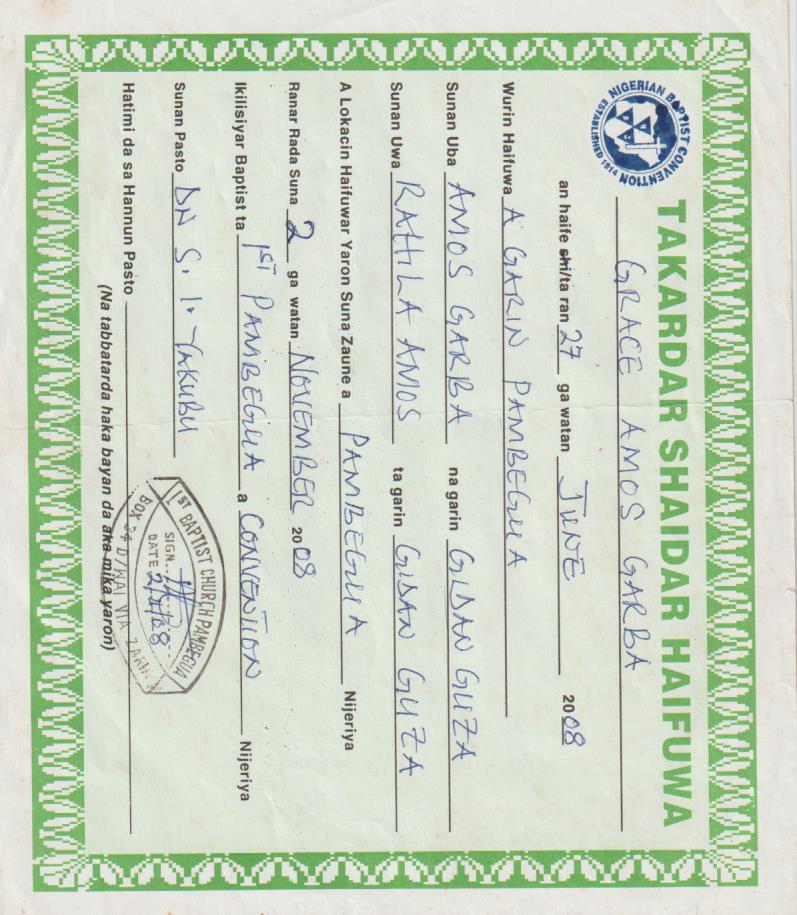 NIGERIAN BAPTIST CONVENTION
ESTABLISHED 1914
TAKARDAR SHAIDAR HAIFUWA
GRACE AMOS GARBA
an haife shi/ta ran 27 ga watan JUNE 2008
Wurin Haifuwa A GARIN PAMBEGUA
Sunan Uba AMOS GARBA na garin GIDAN GUZA
Sunan Uwa RAHILA AMOS ta garin GIDAN GUZA
A Lokacin Haifuwar Yaron Suna Zaune a PAMBEGUA Nijeriya
Ranar Rada Suna 2 ga watan NOVEMBER 2008
Ikilisiyar Baptist ta 1ST PAMBEGUA a CONVENTION Nijeriya
Sunan Pasto DN S. I. YAKUBU
Hatimi da sa Hannun Pasto
(Na tabbatarda haka bayan da aka mika yaron)
1ST BAPTIST CHURCH PAMBEGUA
SIGN
DATE 2/11/08
BOX 34 D/WAI VIA ZARIA